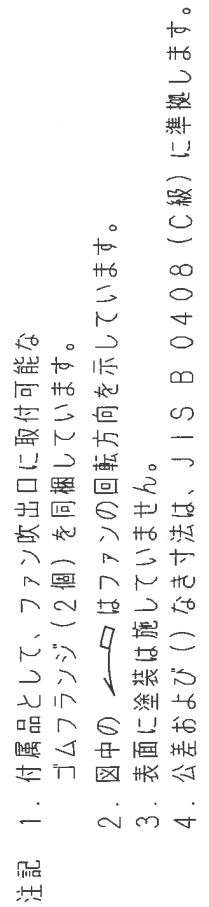 注記 1. 付属品として、ファン吹出口に取付可能な
ゴムフランジ(2個)を同梱しています。
2. 図中の はファンの回転方向を示しています。
3. 表面に塗装は施していません。
4. 公差および()なき寸法は、JIS B 0408(C級)に準拠します。